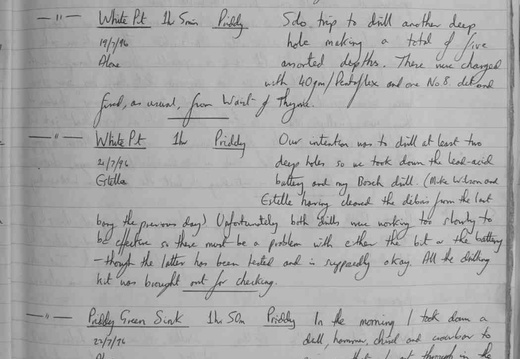 — " — White Pit 1h 5min Priddy Solo trip to drill another deep
19/7/96 hole making a total of five
Alone assorted depths. These were charged
with 40gm/Pentaflex and one No.8 det and
fired, as usual, from Wait of Thyone.
— " — White Pit 1hr Priddy Our intention was to drill at least two
21/7/96 deep holes so we took down the lead-acid
Estelle battery and my Bosch drill. (Mike Wilson and
Estelle having cleared the debris from the last
bang the previous day) Unfortunately both drills were working too slowly to
be effective so there must be a problem with either the bit or the battery
– though the latter has been tested and is supposedly okay. All the drilling
kit was brought out for checking.
— " — Priddy Green Sink 1h 50m Priddy In the morning I took down a
22/7/96 drill, hammer, chisel and crowbar to
through in the